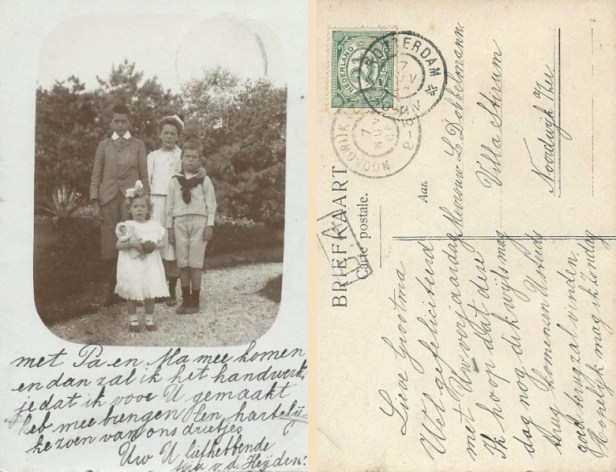 met Pa en Ma mee komen
en dan zal ik het handwerk
je dat ik voor U gemaakt
heb mee brengen. Een hartelij
ke zoen van ons drietjes
Uw U liefhebbende
v. d. Heijden.
NEDERLAND
ROTTERDAM
7
NOORDWIJK
BRIEFKAART
Carte postale.
Aan
Mevrouw L. Dobbelmann.
Villa Stirum
Noordwijk a/Zee
Lieve Grootma
Wel gefeliciteerd
met Uw verjaardag
Ik hoop dat deze
dag nog dikwijls mag
terug komen en U steeds
goed terug zal vinden.
Hoonlijk mag ik Zondag